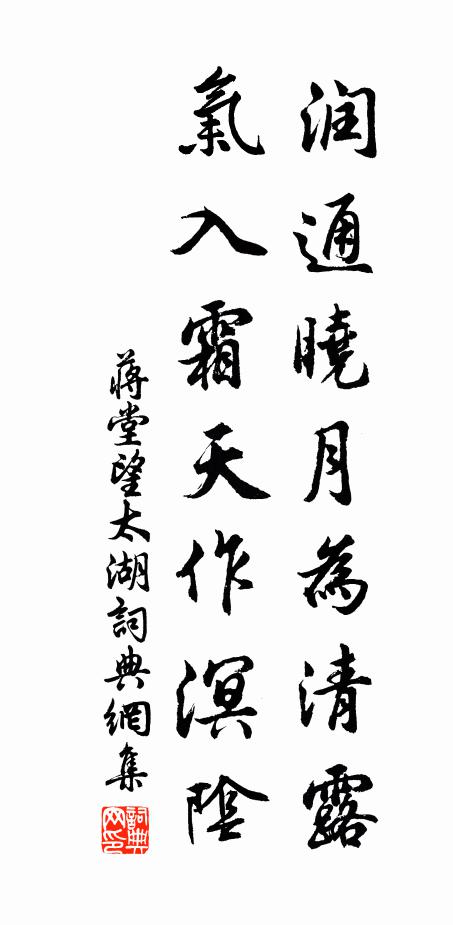 润通曉月為清露
氣入霜天作溟陰
蒋堂望太湖詞典網集
詞典网印